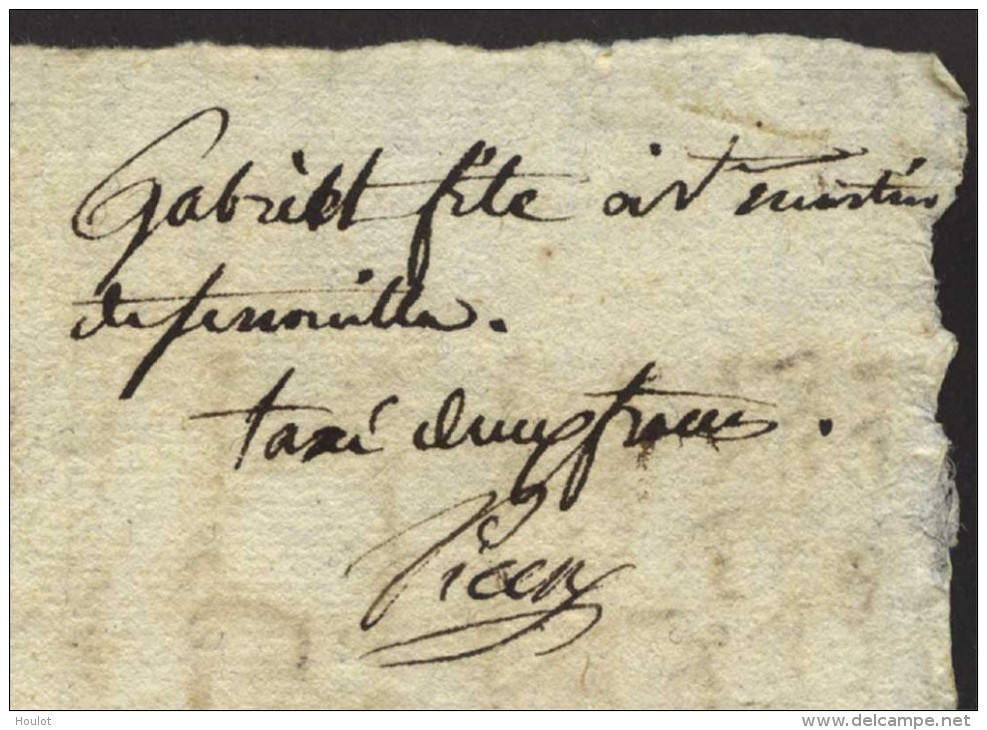 Gabriel fils à St martin
de fenouilla.
taxé d'un franc.
Picon
Houlot
www.delcampe.net